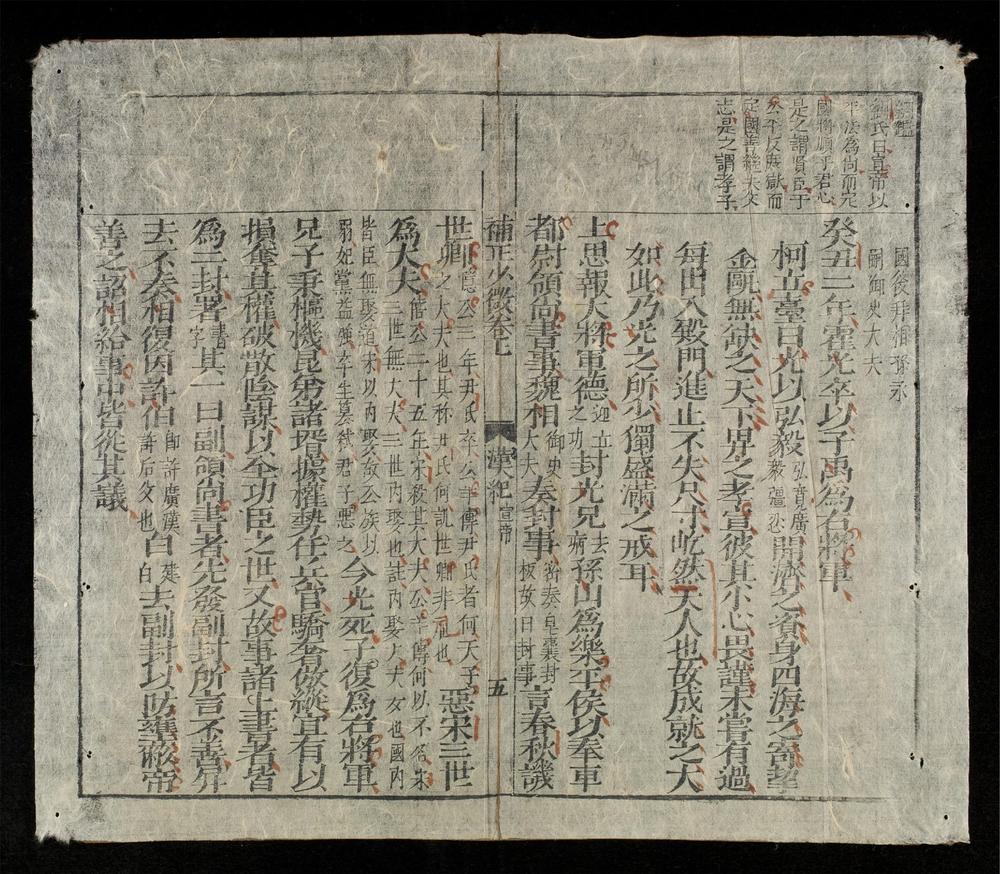 劉氏曰宣帝以
法爲尚而定
國將順乎君心
是之謂賢臣于
公平反庶獄而
定國善繼夫父
志是之謂孝子
國後拜相子永
嗣御史大夫
癸丑三年霍光卒以子禹爲右將軍
柯立臺曰光以弘毅弘寬廣毅彊忍開濟之資身四海之寄望
金甌無缺之天下畀之孝宣彼其小心畏謹未嘗有過
每出入殿門進止不失尺寸屹然天人也故成就之大
如此乃光之所少獨盛滿之戒耳
上思報大將軍德迎立之功封光兄去病孫山爲樂平侯以奉車
都尉領尚書事魏相御史大夫奏封事密奏皁囊封板故曰封事言春秋譏
補正少微卷七 漢紀宣帝 五
世卿隱公三年尹氏卒公羊傳尹氏者何天子之大夫也其称尹氏何訊世卿非礼也惡宋三世
爲大夫僖公二十五年宋殺其大夫公羊傳何以不名宋三世無大夫三世內娶也註內娶大夫女也國內皆臣無娶道宋以內娶故公族以弱妃黨益強卒生篡弒君子惡之今光死子復爲右將軍
兄子秉樞機昆弟諸壻據權勢任兵官驕奢放縱宜有以
損奪其權破散陰謀以全功臣之世又故事諸上書者皆
爲二封署書字其一曰副領尚書者先發副封所言不善屏
去不奏相復因許伯即許廣漢許后父也白建白去副封以防壅蔽帝
善之詔相給事中皆從其議